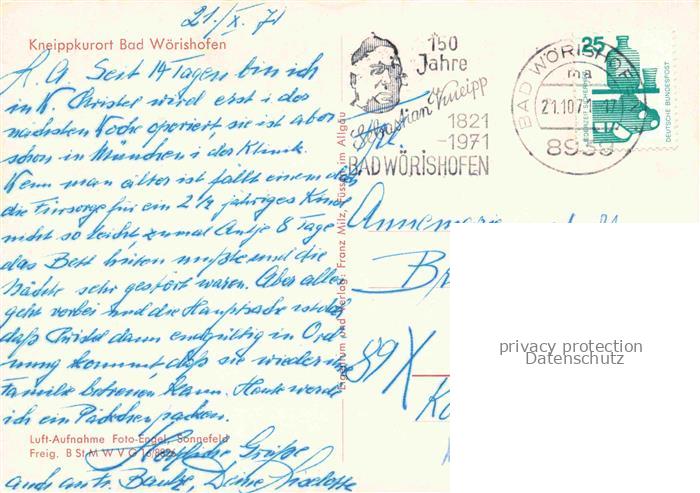 21./X. 71
Kneippkurort Bad Wörishofen
H. A. Seit 14 Tagen bin ich
in K. Christel wird erst i. der
nächsten Woche operiert, sie ist aber
schon in München i. der Klinik.
Wenn man älter ist fällt einem doch
die Fürsorge für ein 2 1/2 jähriges Kind
nicht so leicht, zumal Antje 8 Tage
das Bett hüten mußte und die
Nächte sehr gestört waren. Aber alles
geht vorbei und die Hauptsache ist doch
daß Christel dann endgültig in Ord
nung kommt, daß sie wieder ihre
Familie betreuen kann. Heute werde
ich ein Päckchen packen.
Herzliche Grüße
auch an Fr. Deine
Luft-Aufnahme Foto-Engel, Sonnefeld
Freig. B St M W V G
Eigentum und Verlag: Franz Milz, Füssen im Allgäu
150
Jahre
Sebastian Kneipp
1821
-1971
BAD WÖRISHOFEN
BAD WÖRISHOF
ma
21.10.71-17
8939
25
DEUTSCHE BUNDESPOST
Annemarie
Br
89
K
privacy protection
Datenschutz